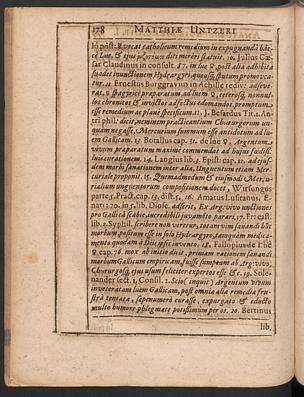 178 MATTHIÆ UNTZERI
catholicum remedium in expugnanda hâc-
ce Lue, & ejus dici mereri statuit. 10. Julius Cæ-
sar Claudinus in consult. 87. in lue ♀ post alia adhibita
suadet inunctionem Hydrargyri, quousq; sputum promovea-
tur. 11. Ernestus Burggravius in Achille rediv. adseve-
rat, ☿ spagyricè præparatum ad luem ♀, ceterosq; nonnul-
los chronicos & invictos adfectus edomandos, promptum
esse remedium ac planè specificum. 12. J. Belardus Tit. 1. An-
tri phil. dicit, neminem practicantium Chirurgorum un-
quam negasse, Mercurium summum esse antidotum ad lu-
em Gallicam. 13. Botallus cap. 31. de lue ♀, Argentum
vivum præparatum maximè commendat ad hujus
luis curationem. 14. Langius lib. 2. Epist. cap. 11. ad ejus-
dem morbi sanationem inter alia, Unguentum etiam Mer-
curiale proponit. 15. Quemadmodum & istiusmodi Mercu-
rialium unguentorum compositionem docet, Wirsungus
parte 5. Pract. cap. 15. dist. 5. 16. Amatus Lusitanus, E-
narr: 70. in 5. lib. Diosc. asserit, Ex Argento vivo unctiones
pro Gallicâ scabie, incredibili juvamēto parari. 17. Fracast.
lib. 2. Syphil. scribere non veretur, totam vim sanandi hūc
morbum, positum esse in solo Hydrargyro, tanquam medica-
mento quodam à Diis ipsis invento. 18. Fallopius de Lue
♀ cap. 76. mox ab initio dicit, primam rationem sanandi
morbum Gallicum empiricam, fuisse sumptam ab Argēto vivo,
Chirurgosq; ejus usum feliciter expertos esse &c. 19. Sole-
nander sect. 1. Consil. 2. Scio (inquit) Argentum vivum
inveteratam luem Gallicam, post omnia alia remedia fru-
strà tentata, sæpenumerò curasse, expurgato & educto
multo humore phlegmate potissimum per os. 20. Bertinus
lib.